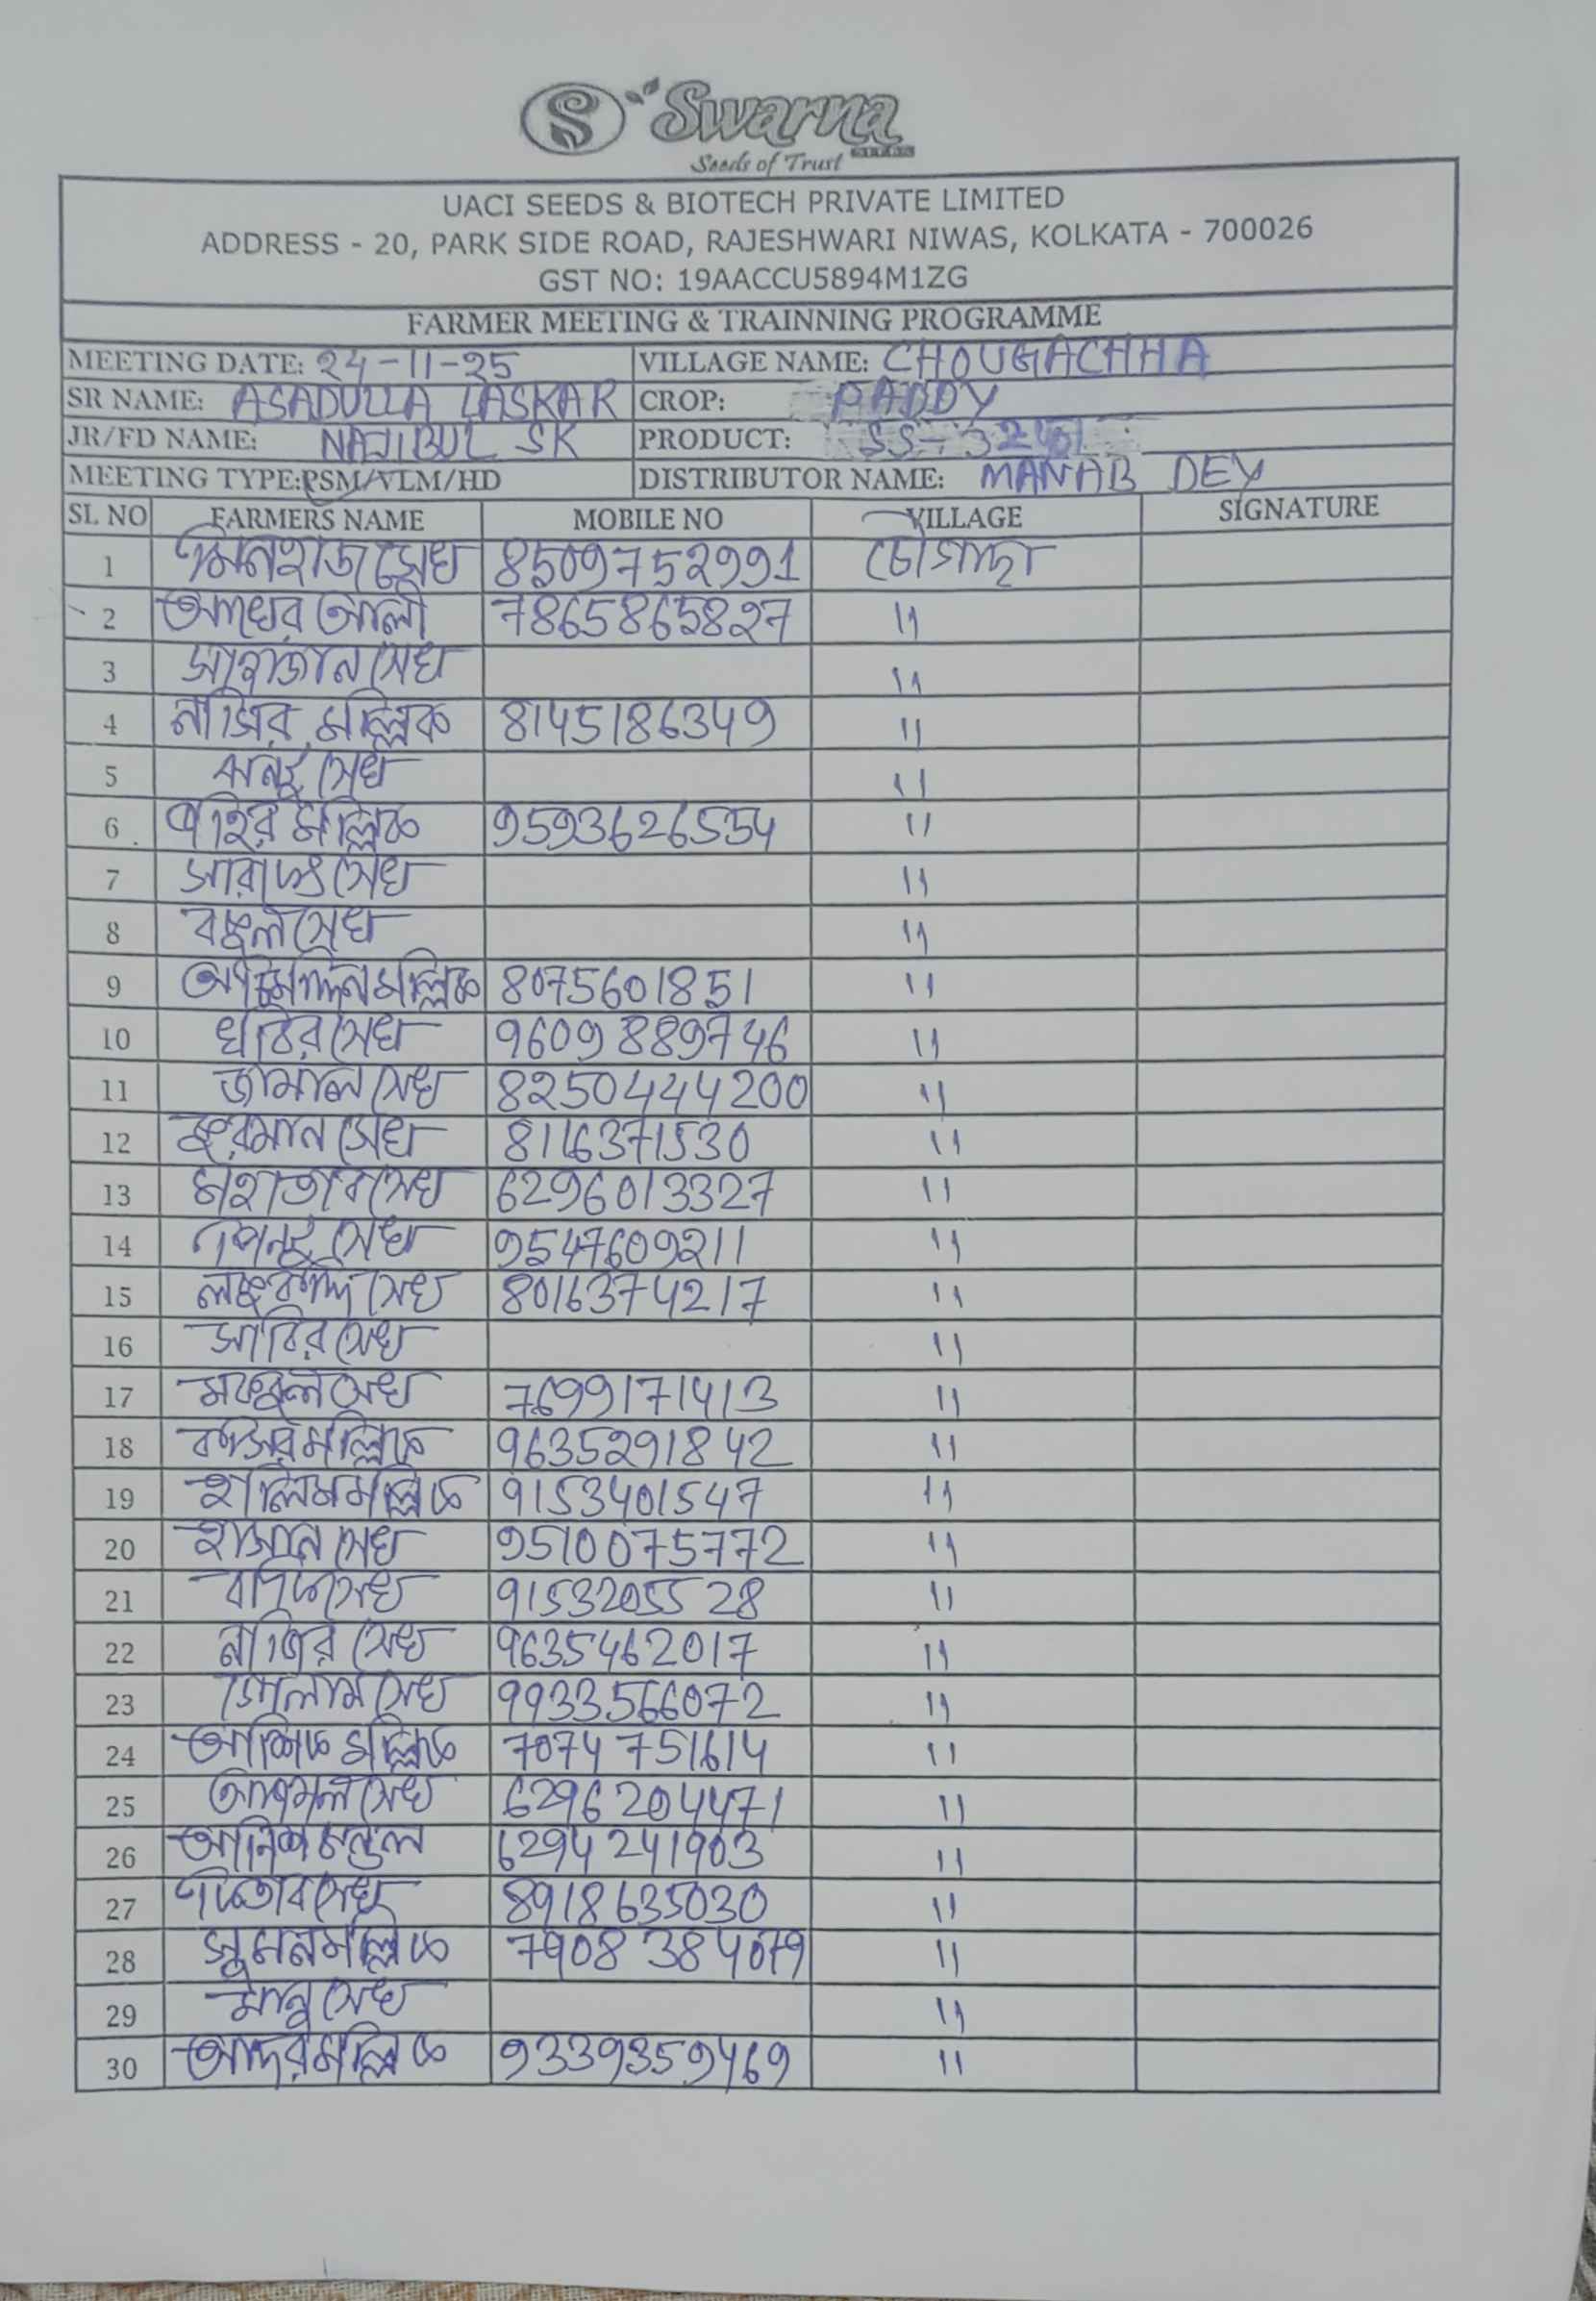 Swarna
SEEDS
Seeds of Trust
UACI SEEDS & BIOTECH PRIVATE LIMITED
ADDRESS - 20, PARK SIDE ROAD, RAJESHWARI NIWAS, KOLKATA - 700026
GST NO: 19AACCU5894M1ZG
FARMER MEETING & TRAINNING PROGRAMME
MEETING DATE: 24-11-25 VILLAGE NAME: CHOUGACHHA
SR NAME: ASADULLA LASKAR CROP: PADDY
JR/FD NAME: NAJIBUL SK PRODUCT: SS-
MEETING TYPE:PSM/VLM/HD DISTRIBUTOR NAME: MANAB DEY
SL NO FARMERS NAME MOBILE NO VILLAGE SIGNATURE
1 সেখ 8509752991 চৌগাছা
2 আলী 7865865827 "
3 সাহাজান সেখ "
4 নাসির মল্লিক 8145186349 "
5 সেখ "
6 মল্লিক 9593626554 "
7 সেখ "
8 সেখ "
9 মল্লিক 8075601851 "
10 সেখ 9609889746 "
11 জামাল সেখ 8250444200 "
12 সেখ 8116371530 "
13 মহাতাব সেখ 6296013327 "
14 সেখ 9547609211 "
15 সেখ 8016374217 "
16 সাবির সেখ "
17 সেখ 7699171413 "
18 মল্লিক 9635291842 "
19 হালিম মল্লিক 9153401547 "
20 হাসান সেখ 9510075772 "
21 সেখ 9153205528 "
22 নাজির সেখ 9635462017 "
23 গোলাম সেখ 9933566072 "
24 আশিক মল্লিক 7074751614 "
25 সেখ 6296204471 "
26 মন্ডল 6294241903 "
27 সেখ 8918635030 "
28 সুমন মল্লিক 7908384079 "
29 সেখ "
30 মল্লিক 9339359469 "